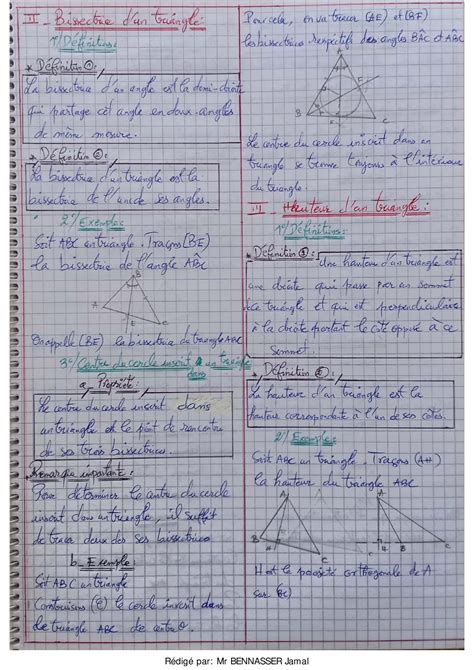 II - Bissectrice d'un triangle:
1°/ Définitions:
* Définition ①:
La bissectrice d'un angle est la demi-droite
qui partage cet angle en deux angles
de même mesure.
* Définition ②:
La bissectrice d'un triangle est la
bissectrice de l'un de ses angles.
2°/ Exemple:
Soit ABC un triangle. Traçons [BE)
la bissectrice de l'angle ABC
B
A
E
C
On appelle [BE) la bissectrice du triangle ABC
3°/ Centre du cercle inscrit dans un triangle
a_ Propriété:
Le centre du cercle inscrit dans
un triangle est le point de rencontre
de ses trois bissectrices.
Remarque importante:
Pour déterminer le centre du cercle
inscrit dans un triangle, il suffit
de tracer deux de ses bissectrices
b_ Exemple:
Soit ABC un triangle
Construisons (C) le cercle inscrit dans
le triangle ABC de centre O.
Pour cela, on va tracer [AE) et [BF)
les bissectrices respectives des angles BAC et ABC
A
B
C
Le centre du cercle inscrit dans un
triangle se trouve toujours à l'intérieur
du triangle.
III - Hauteur d'un triangle:
1°/ Définitions:
* Définition ①: Une hauteur d'un triangle est
une droite qui passe par un sommet
de ce triangle et qui est perpendiculaire
à la droite portant le côté opposé à ce
sommet.
* Définition ②:
La hauteur d'un triangle est la
hauteur correspondante à l'un de ses côtés.
2°/ Exemple:
Soit ABC un triangle. Traçons (AH)
la hauteur du triangle ABC
A
B
H
C
A
H
B
C
H est le projeté orthogonale de A
sur (BC)
Rédigé par: Mr BENNASSER Jamal